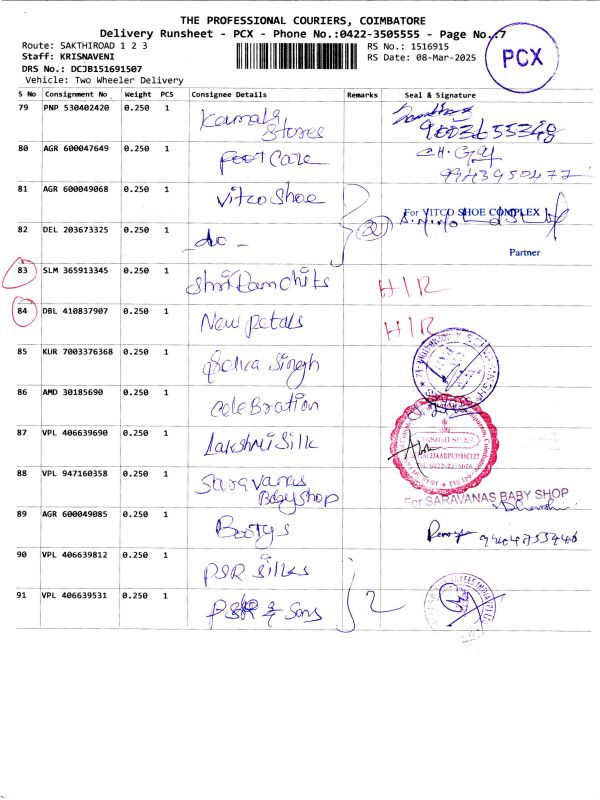 THE PROFESSIONAL COURIERS, COIMBATORE
Delivery Runsheet - PCX - Phone No.:0422-3505555 - Page No.:7
Route: SAKTHIROAD 1 2 3
RS No.: 1516915
Staff: KRISNAVENI
RS Date: 08-Mar-2025
DRS No.: DCJB151691507
Vehicle: Two Wheeler Delivery
PCX
S No Consignment No Weight PCS Consignee Details Remarks Seal & Signature
79 PNP 530402420 0.250 1 Kamala Stores
80 AGR 600047649 0.250 1 Foot Care
81 AGR 600049068 0.250 1 Vitco Shoe
For VITCO SHOE COMPLEX
82 DEL 203673325 0.250 1 -do-
Partner
83 SLM 365913345 0.250 1 Shri Ram Chits H/R
84 DBL 410837907 0.250 1 New Petals H/R
85 KUR 7003376368 0.250 1 Selva Singh
86 AMD 30185690 0.250 1 Celebration
87 VPL 406639690 0.250 1 Lakshmi Silk
88 VPL 947160358 0.250 1 Saravanas Baby shop
For SARAVANAS BABY SHOP
89 AGR 600049085 0.250 1 Bootys
90 VPL 406639812 0.250 1 PSR Silks
91 VPL 406639531 0.250 1 PSR & Sons 2